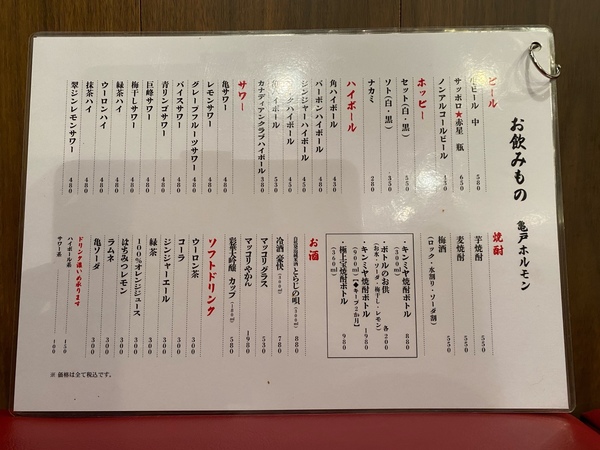 お飲みもの 亀戸ホルモン
ビール
生ビール 中 580
サッポロ★赤星 瓶 650
ノンアルコールビール 430
ホッピー
セット(白・黒) 550
ソト(白・黒) 350
ナカミ 280
ハイボール
角ハイボール 430
バーボンハイボール 480
ジンジャーハイボール 450
ハイボール 450
ハイボール 530
カナディアンクラブハイボール 380
サワー
亀サワー 480
レモンサワー 480
グレープフルーツサワー 480
バイスサワー 480
青リンゴサワー 480
巨峰サワー 480
梅干しサワー 480
緑茶ハイ 480
ウーロンハイ 480
抹茶ハイ 480
翠ジンレモンサワー 480
焼酎
芋焼酎 550
麦焼酎 550
梅酒 550
(ロック・水割り・ソーダ割)
・キンミヤ焼酎ボトル 880
(300ml)
・ボトルのお供 各200
(お水・ソーダ・梅干し・レモン)
・キンミヤ焼酎ボトル 1980
(900ml)【◆キープ2か月】
・極上宝焼酎ボトル 980
(360ml)
お酒
とらじの唄 (300ml) 880
冷酒 豪快 (300ml) 780
マッコリグラス 530
マッコリやかん 1980
彩華大吟醸 カップ (180ml) 580
ソフトドリンク
ウーロン茶 300
コーラ 300
ジンジャーエール 300
緑茶 300
100%オレンジジュース 300
はちみつレモン 300
ラムネ 300
亀ソーダ 300
ドリンク濃いめ承ります
ハイボール系 150
サワー系 100
※ 価格は全て税込です。